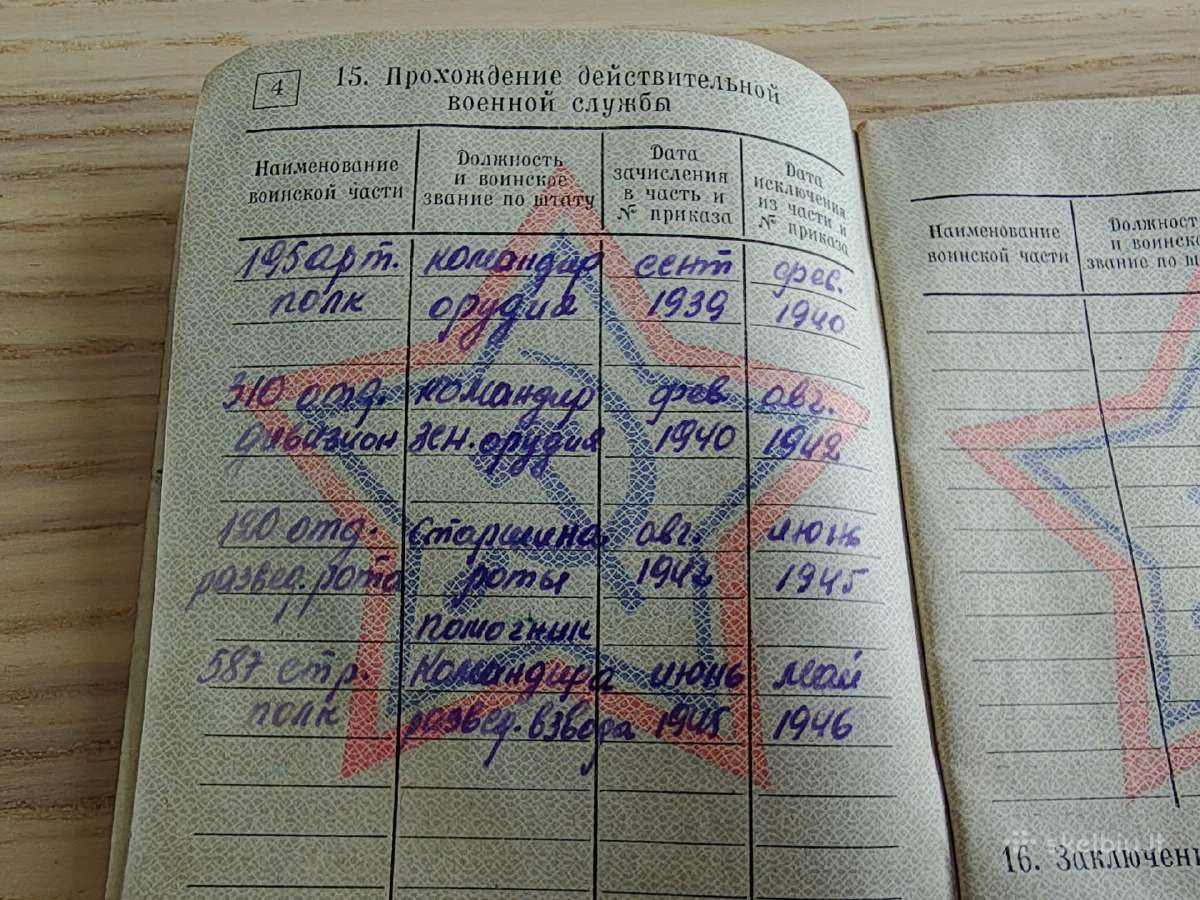 4
15. Прохождение действительной
военной службы
Наименование воинской части
Должность и воинское звание по штату
Дата зачисления в часть и № приказа
Дата исключения из части и № приказа
195 арт. командир сент фев.
полк орудия 1939 1940
310 отд. командир фев авг.
дивизион зен. орудия 1940 1942
190 отд. старшина авг. июнь
развед. рота роты 1942 1945
помогник
587 стр. командира июнь май
полк развед. взвода 1945 1946
Наименование
воинской части
Должность
и воинское
звание по
16. Заключени
skelbiu.lt